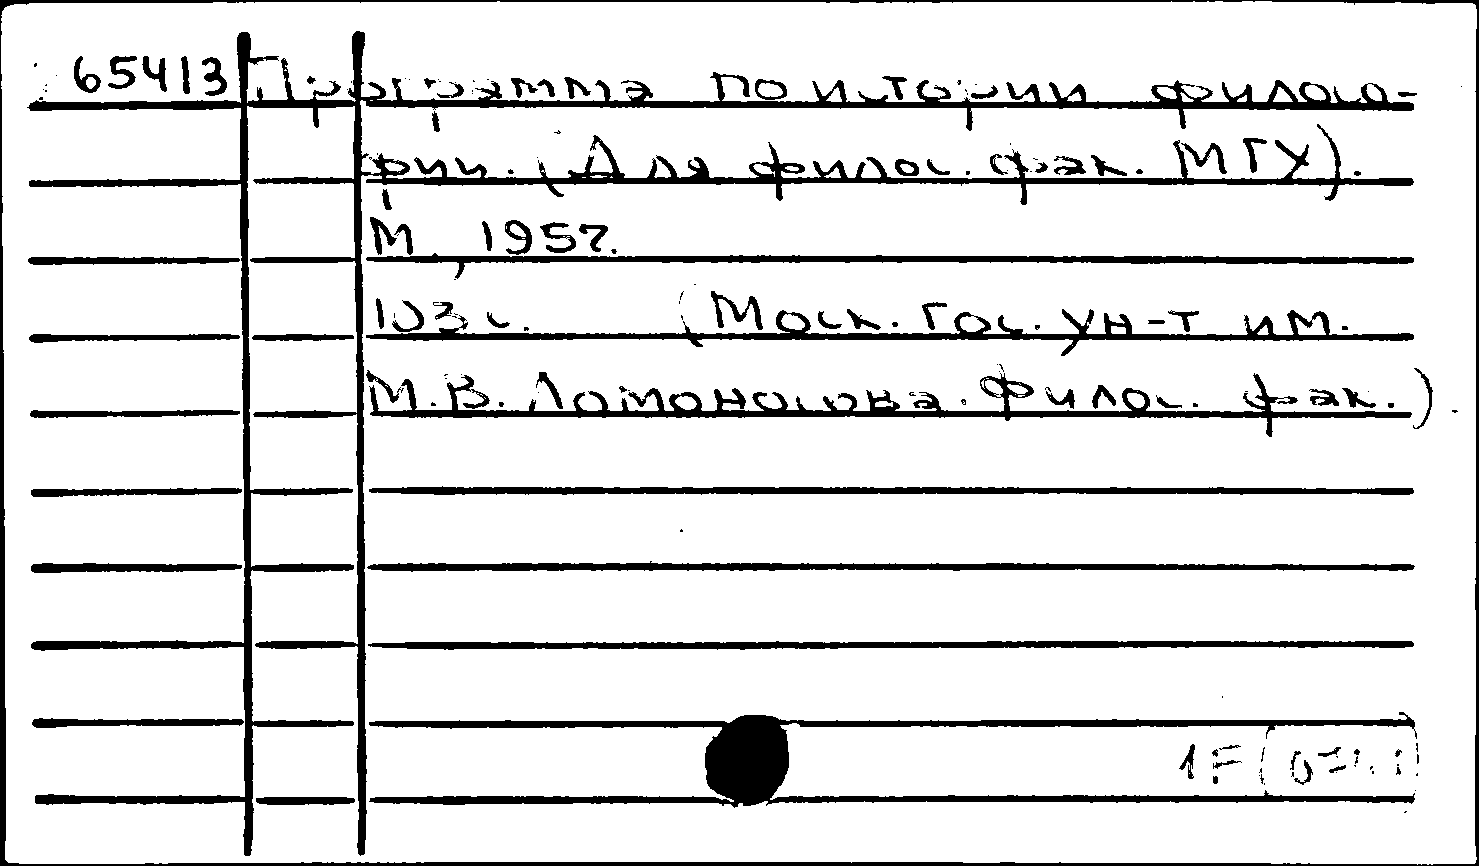 65413 Программа по истории филосо-
фии. (Для филос. фак. МГУ).
М., 1957.
103 с. (Моск. гос. ун-т им.
М.В. Ломоносова. Филос. фак.).
1F